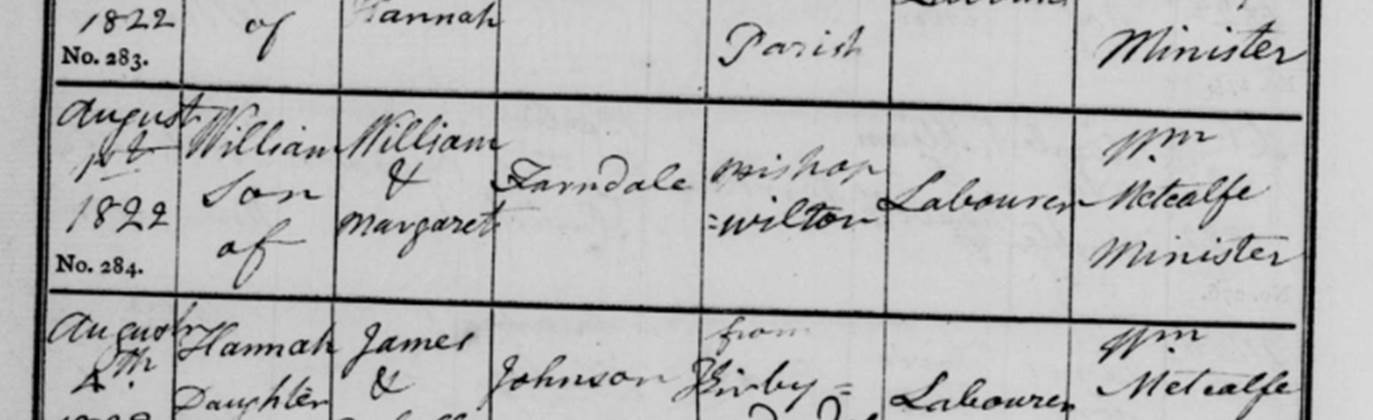 1822
of
Hannah
Parish
Minister
No. 283.
August
1st
1822
No. 284.
William
son
of
William
&
Margaret
Farndale
Bishop
=wilton
Labourer
Wm
Metcalfe
Minister
August
4th
Hannah
Daughter
James
&
Johnson
from
Kirby =
Labourer
Wm
Metcalfe